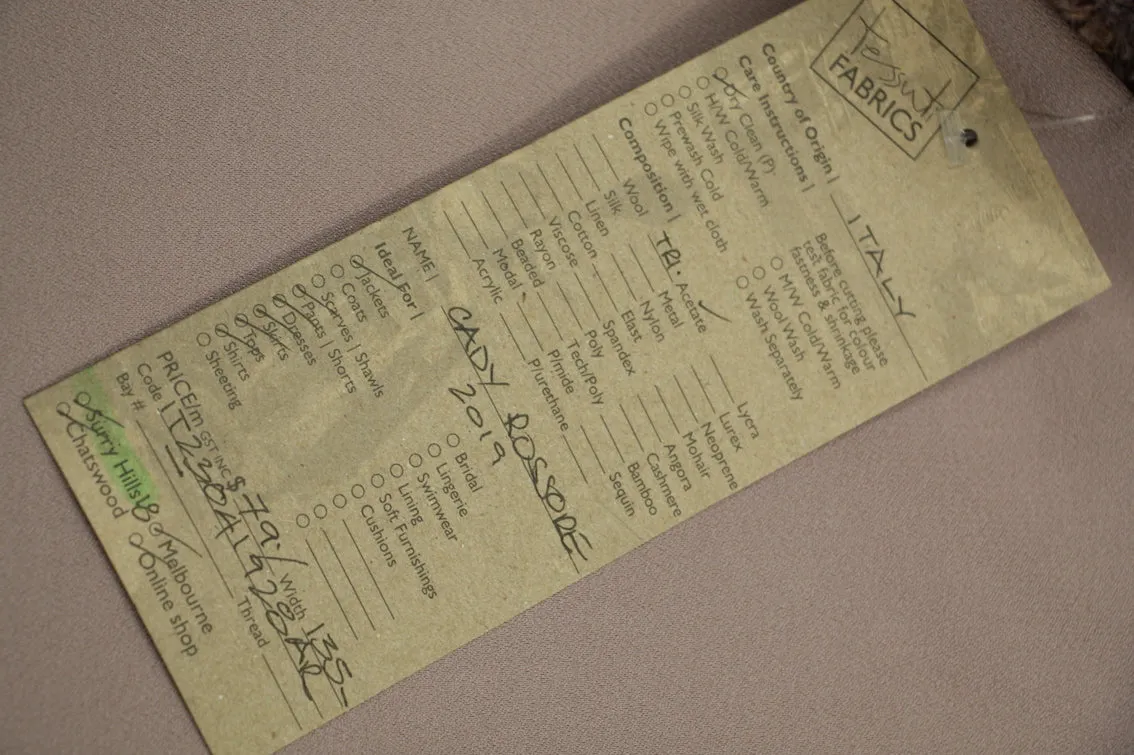 tessuti
FABRICS
Country of Origin | ITALY
Care Instructions |
Dry Clean (P)
H/W Cold/Warm
Silk Wash
Prewash Cold
Wipe with wet cloth
Before cutting please
test fabric for colour
fastness & shrinkage
M/W Cold/Warm
Wool Wash
Wash Separately
Composition |
Wool
Silk
Linen
Cotton
Viscose
Rayon
Beaded
Modal
Acrylic
TRI. Acetate
Metal
Nylon
Elast
Spandex
Poly
Tech/Poly
P/mide
P/urethane
Lycra
Lurex
Neoprene
Mohair
Angora
Cashmere
Bamboo
Sequin
NAME | CADY ROSSORE
2019
Ideal For |
Jackets
Coats
Scarves | Shawls
Pants | Shorts
Dresses
Skirts
Tops
Shirts
Sheeting
Bridal
Lingerie
Swimwear
Lining
Soft Furnishings
Cushions
PRICE/m GST INC $79.- Width 135-
Code |
Bay # Thread
Surry Hills 18 Melbourne
Chatswood Online shop